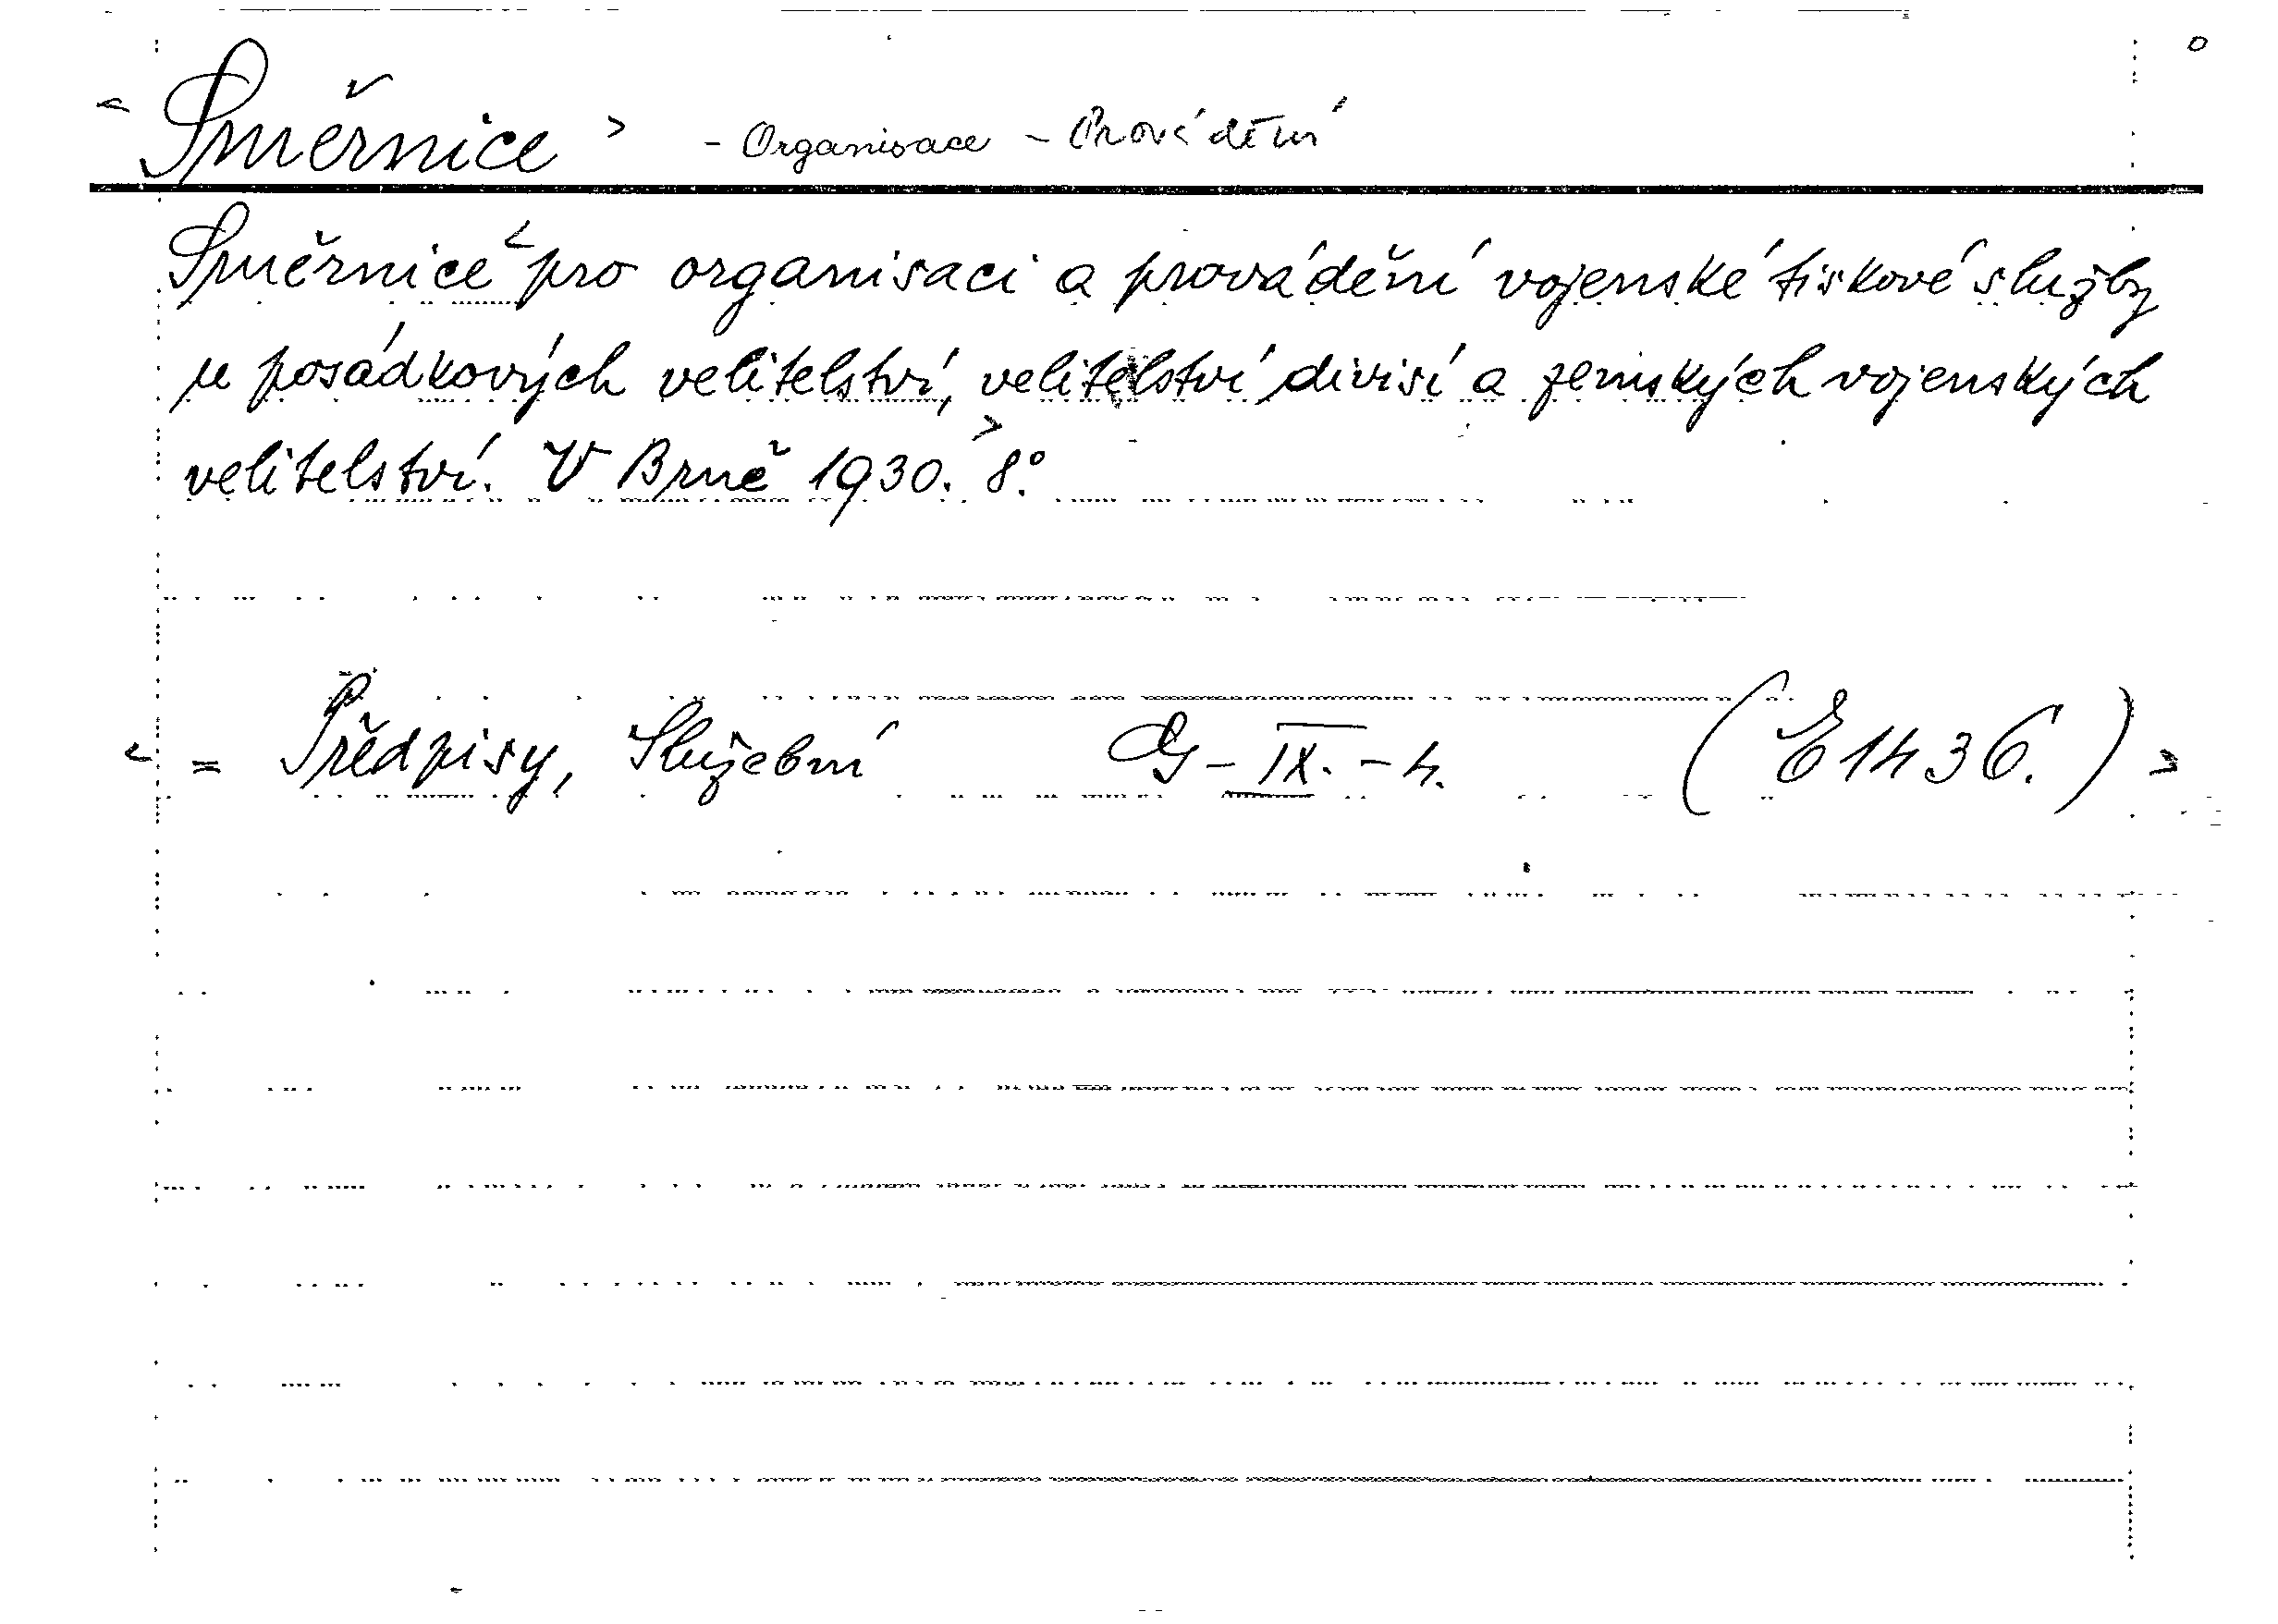 < Směrnice > - Organisace - Provádění
Směrnice < pro organisaci a provádění vojenské tiskové služby
u posádkových velitelství, velitelství divisí a zemských vojenských
velitelství. V Brně 1930. > 8°.
< = Předpisy, Služební G-IX.-4. (E1436.) >